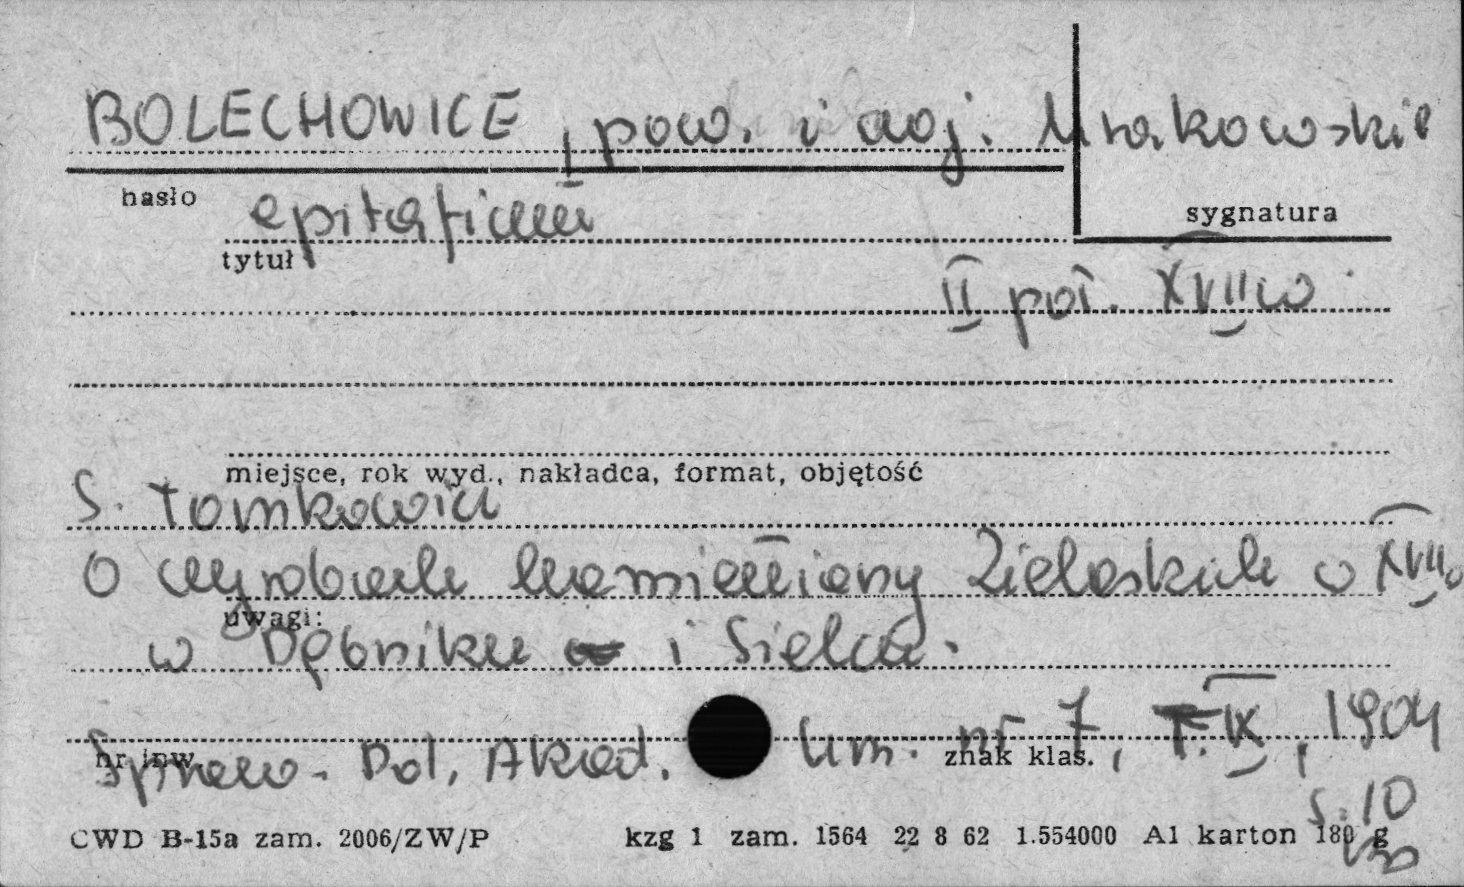 BOLECHOWICE, pow. i woj. krakowskie
hasło
sygnatura
epitafium
tytuł
II poł. XVII w.
miejsce, rok wyd., nakładca, format, objętość
S. Tomkowicz
O wyrobach kamieniarzy w XVII w
uwagi:
w Dębniku i Sielca.
Spraw. Pol. Akad. Um. nr 7, T. IX, 1904
nr inw.
znak klas.
s. 10
CWD B-15a zam. 2006/ZW/P kzg 1 zam. 1564 22 8 62 1.554000 A1 karton 180 g